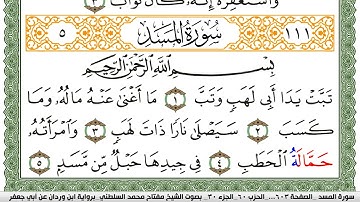 وَاسْتَغْفِرْهُ إِنَّهُ كَانَ تَوَّابًا ٣
٥ سُورَةُ المَسَدِ ١١١
بِسْمِ اللَّهِ الرَّحْمَٰنِ الرَّحِيمِ
تَبَّتْ يَدَا أَبِي لَهَبٍ وَتَبَّ ١ مَا أَغْنَىٰ عَنْهُ مَالُهُ وَمَا
كَسَبَ ٢ سَيَصْلَىٰ نَارًا ذَاتَ لَهَبٍ ٣ وَامْرَأَتُهُ
حَمَّالَةُ الْحَطَبِ ٤ فِي جِيدِهَا حَبْلٌ مِّن مَّسَدٍ ٥
سورة المسد _الصفحة ٦٠٣_ الحزب ٦٠_ الجزء ٣٠_ بصوت الشيخ مفتاح محمد السلطني _برواية ابن وردان عن أبي جعفر